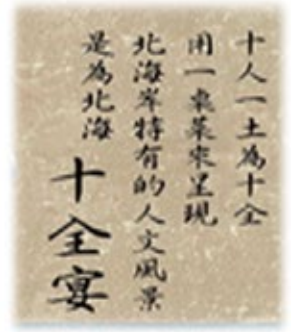 十人一土為十全
用一桌菜來呈現
北海岸特有的人文風景
是為北海
十全宴